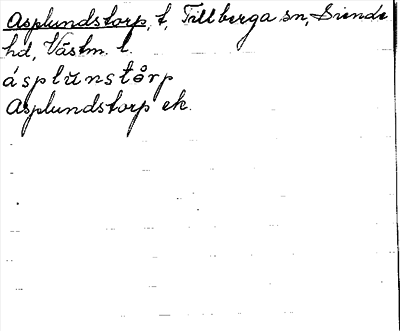 Asplundstorp, t, Tillberga sn, Siende
hd, Västm. l.
ásplūnstårp
Asplundstorp ek.